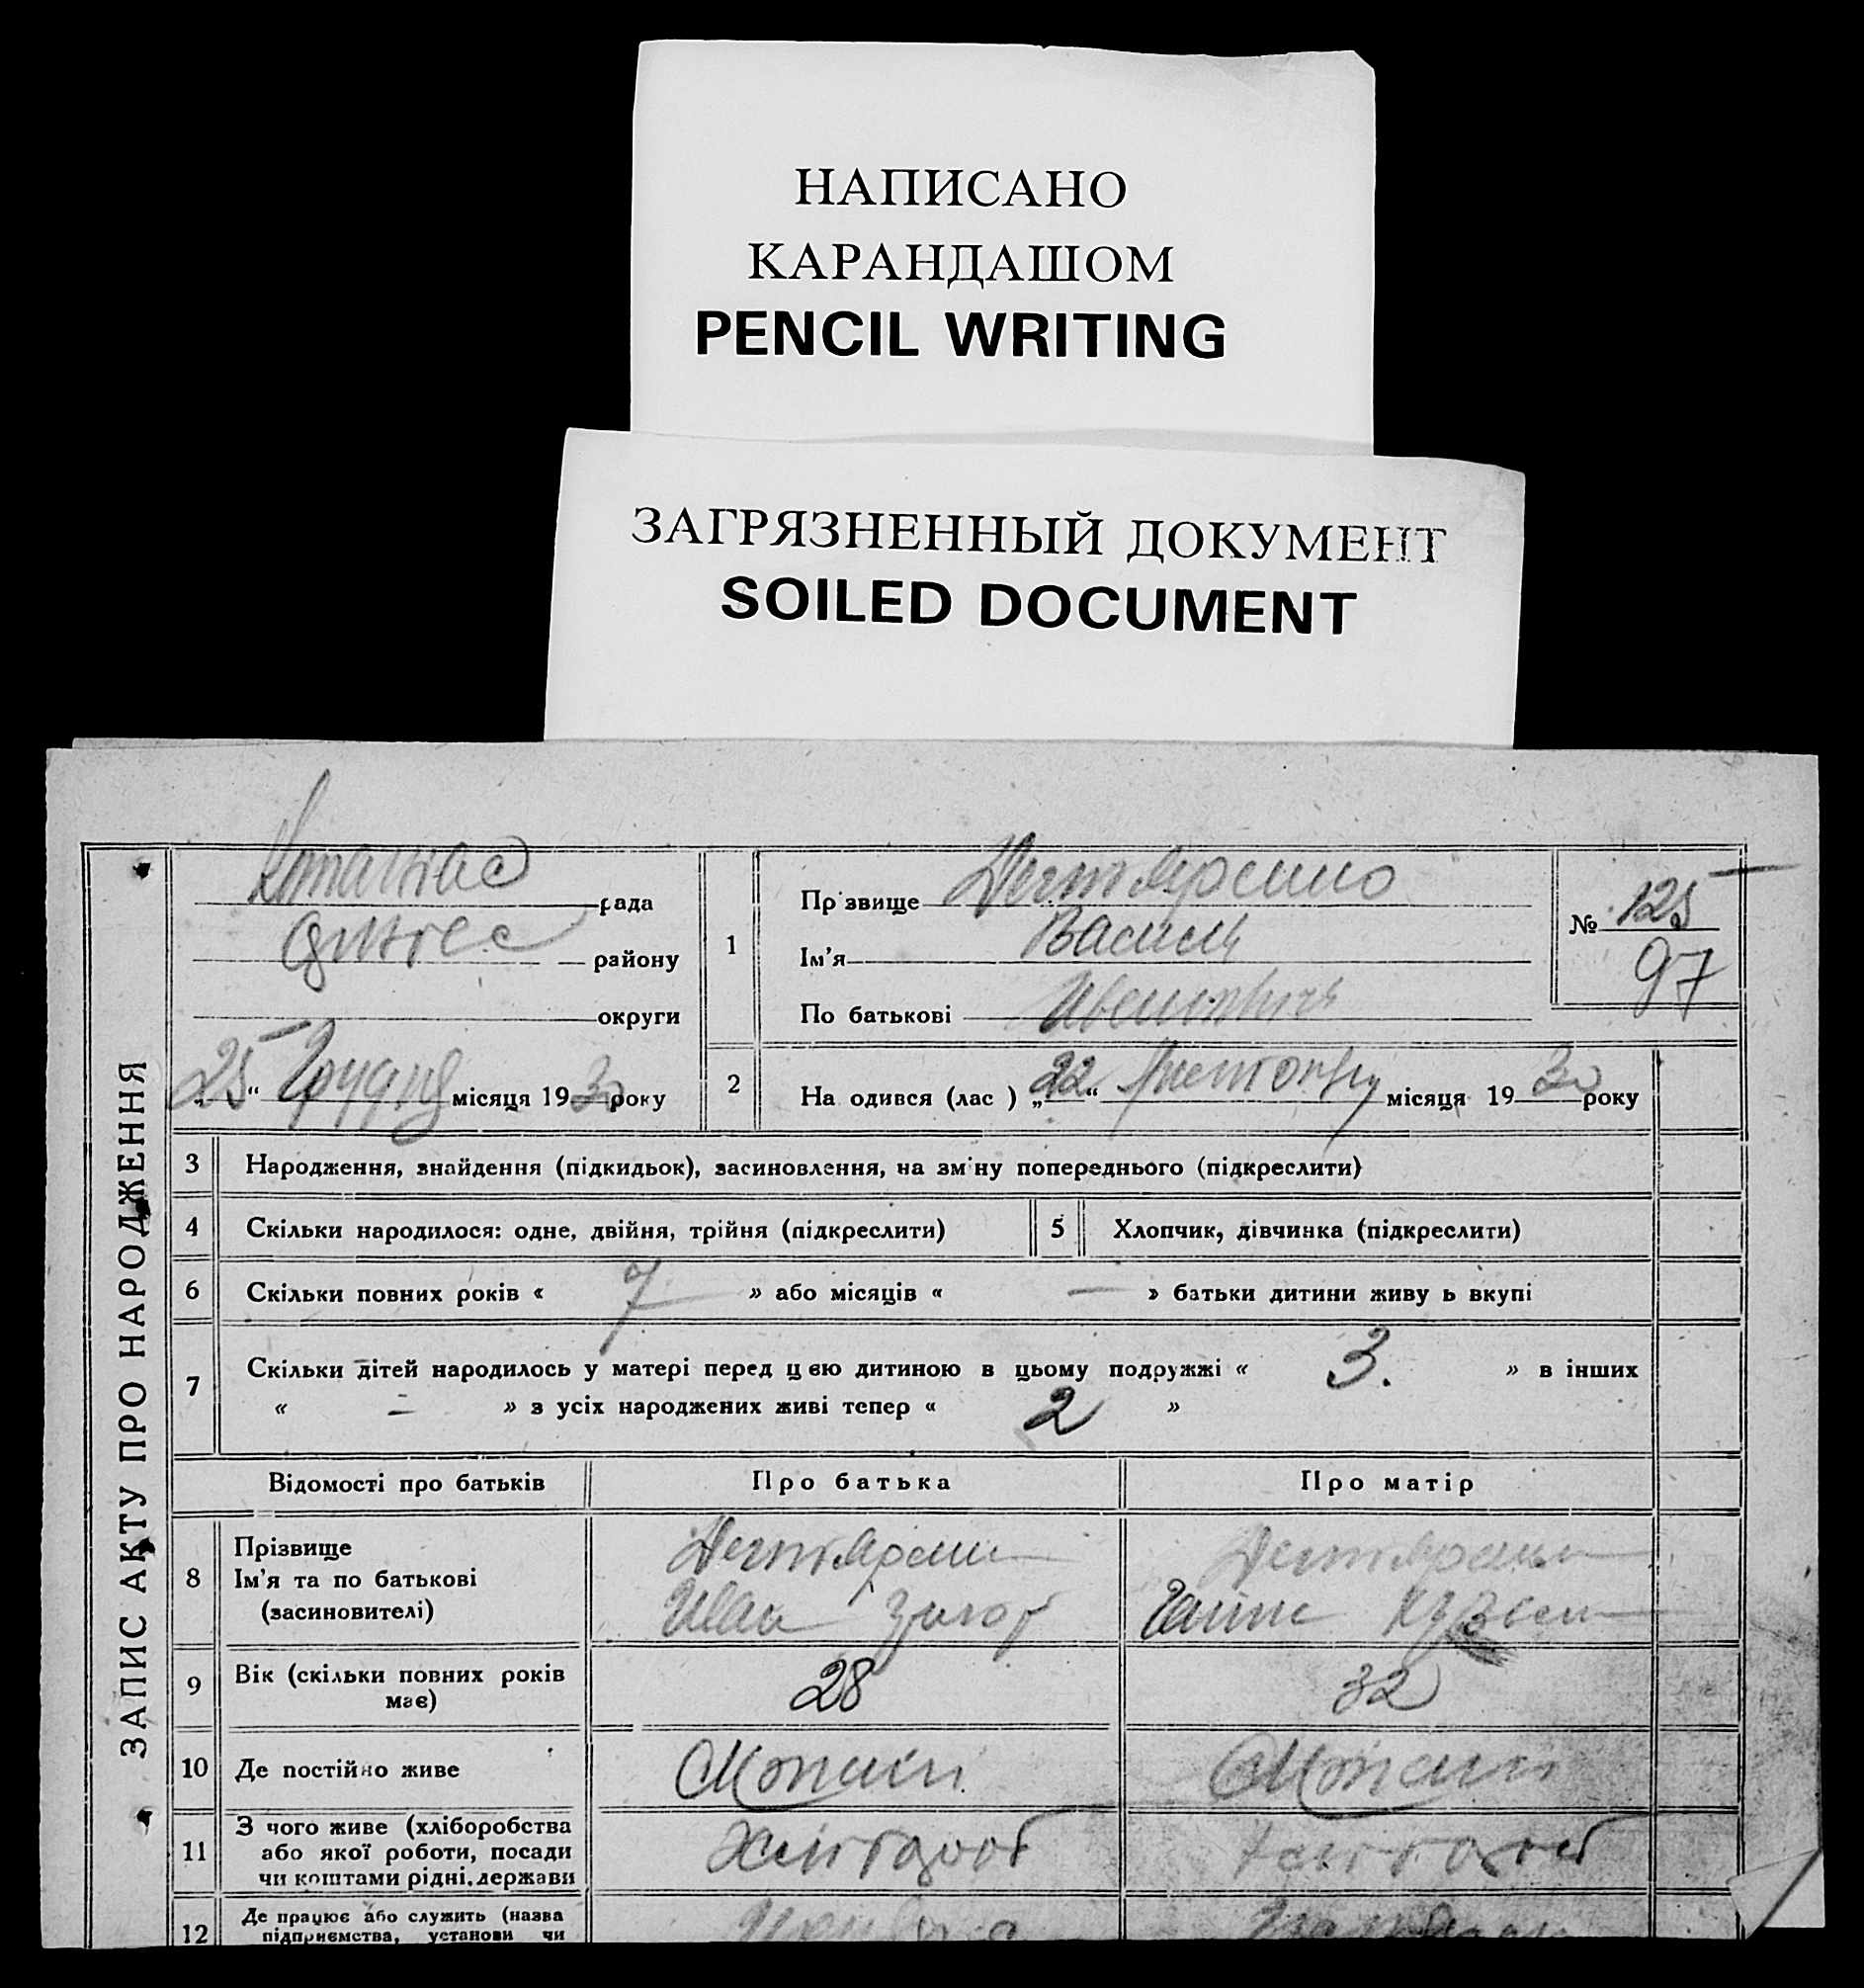 НАПИСАНО
КАРАНДАШОМ
PENCIL WRITING
ЗАГРЯЗНЕННЫЙ ДОКУМЕНТ
SOILED DOCUMENT
ЗАПИС АКТУ ПРО НАРОДЖЕННЯ
рада
району
округи
25 “ Грудня місяця 1930 року
1
Пр звище Дегтяренко
Ім'я Василь
По батькові Иванович
№ 125
97
2
На одився (лас ) „22“ місяця 1930 року
3 Народження, знайдення (підкидьок), засиновлення, на зм ну попереднього (підкреслити)
4 Скільки народилося: одне, двійня, трійня (підкреслити)
5 Хлопчик, дівчинка (підкреслити)
6 Скільки повних років « 7 » або місяців « — » батьки дитини живу ь вкупі
7 Скільки дітей народилось у матері перед ц ею дитиною в цьому подружжі « 3. » в інших
« — » з усіх народжених живі тепер « 2 »
Відомості про батьків
Про батька
Про матір
8
Прізвище
Ім'я та по батькові
(засиновителі)
Иван
28
32
9
Вік (скільки повних років
має)
10 Де постійно живе
11
З чого живе (хліборобства
або якої роботи, посади
чи коштами рідні, держави
12
Де працює або служить (назва
підприємства, установи чи